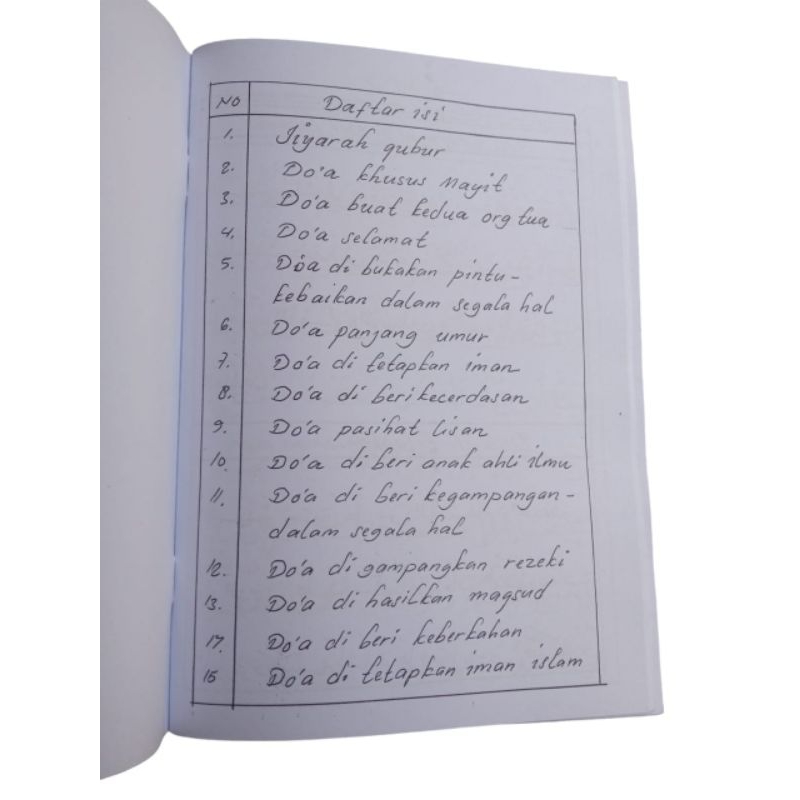 NO Daftar isi
1. Jiyarah qubur
2. Do'a khusus mayit
3. Do'a buat kedua org tua
4. Do'a selamat
5. Do'a di bukakan pintu-
kebaikan dalam segala hal
6. Do'a panjang umur
7. Do'a di tetapkan iman
8. Do'a di beri kecerdasan
9. Do'a pasihat lisan
10. Do'a di beri anak ahli ilmu
11. Do'a di beri kegampangan-
dalam segala hal
12. Do'a di gampangkan rezeki
13. Do'a di hasilkan maqsud
17. Do'a di beri keberkahan
15 Do'a di tetapkan iman islam